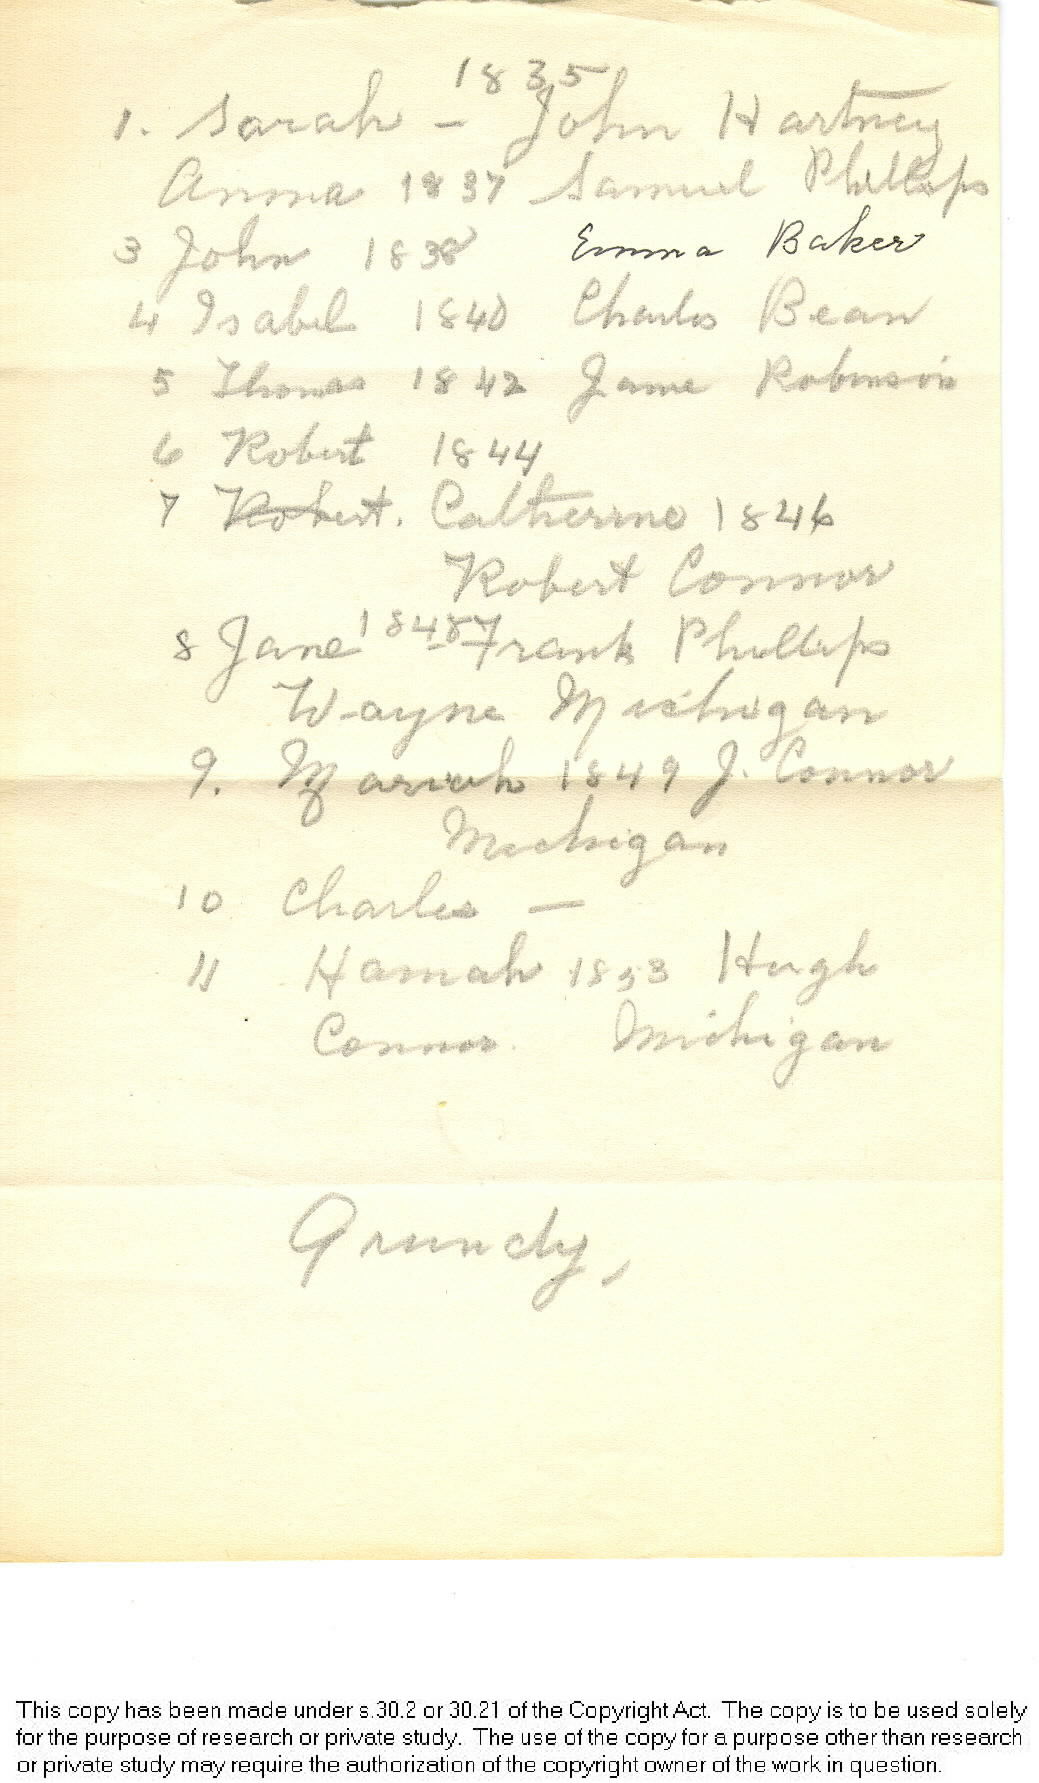 1835
1. Sarah - John Hartney
Anna 1837 Samuel Phillips
3 John 1838 Emma Baker
4 Isabel 1840 Charles Bean
5 Thomas 1842 Jane Robinson
6 Robert 1844
7 Robert. Catherine 1846
Robert Connor
8 Jane Frank Phillips
Wayne Michigan
9. Mariah 1849 J. Connor
Michigan
10 Charles -
11 Hannah 1853 Hugh
Connor. Michigan
Grundy,
This copy has been made under s.30.2 or 30.21 of the Copyright Act. The copy is to be used solely
for the purpose of research or private study. The use of the copy for a purpose other than research
or private study may require the authorization of the copyright owner of the work in question.